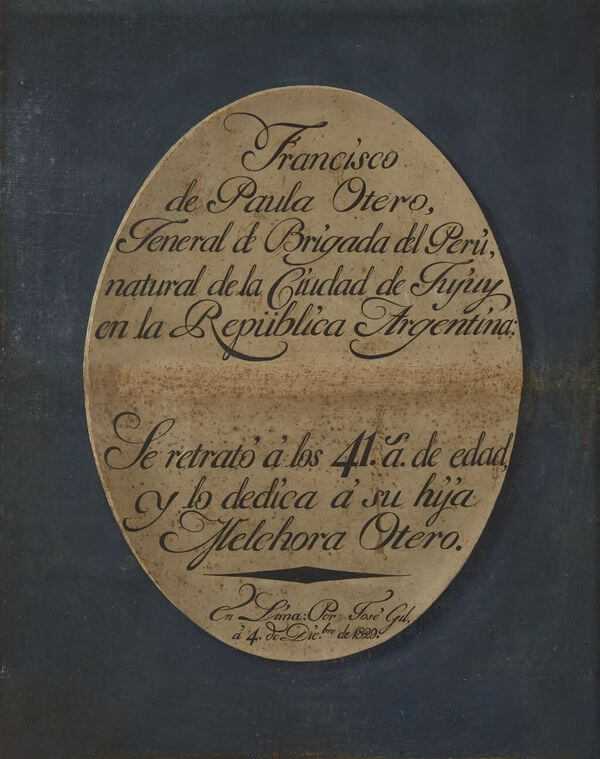 Francisco
de Paula Otero,
General de Brigada del Perú,
natural de la Ciudad de Jujuy
en la República Argentina:
Se retrató á los 41. a.ˢ de edad,
y lo dedica á su hija
Melchora Otero.
En Lima: Por José Gil.
á 4. de Dic.bre de 1829.